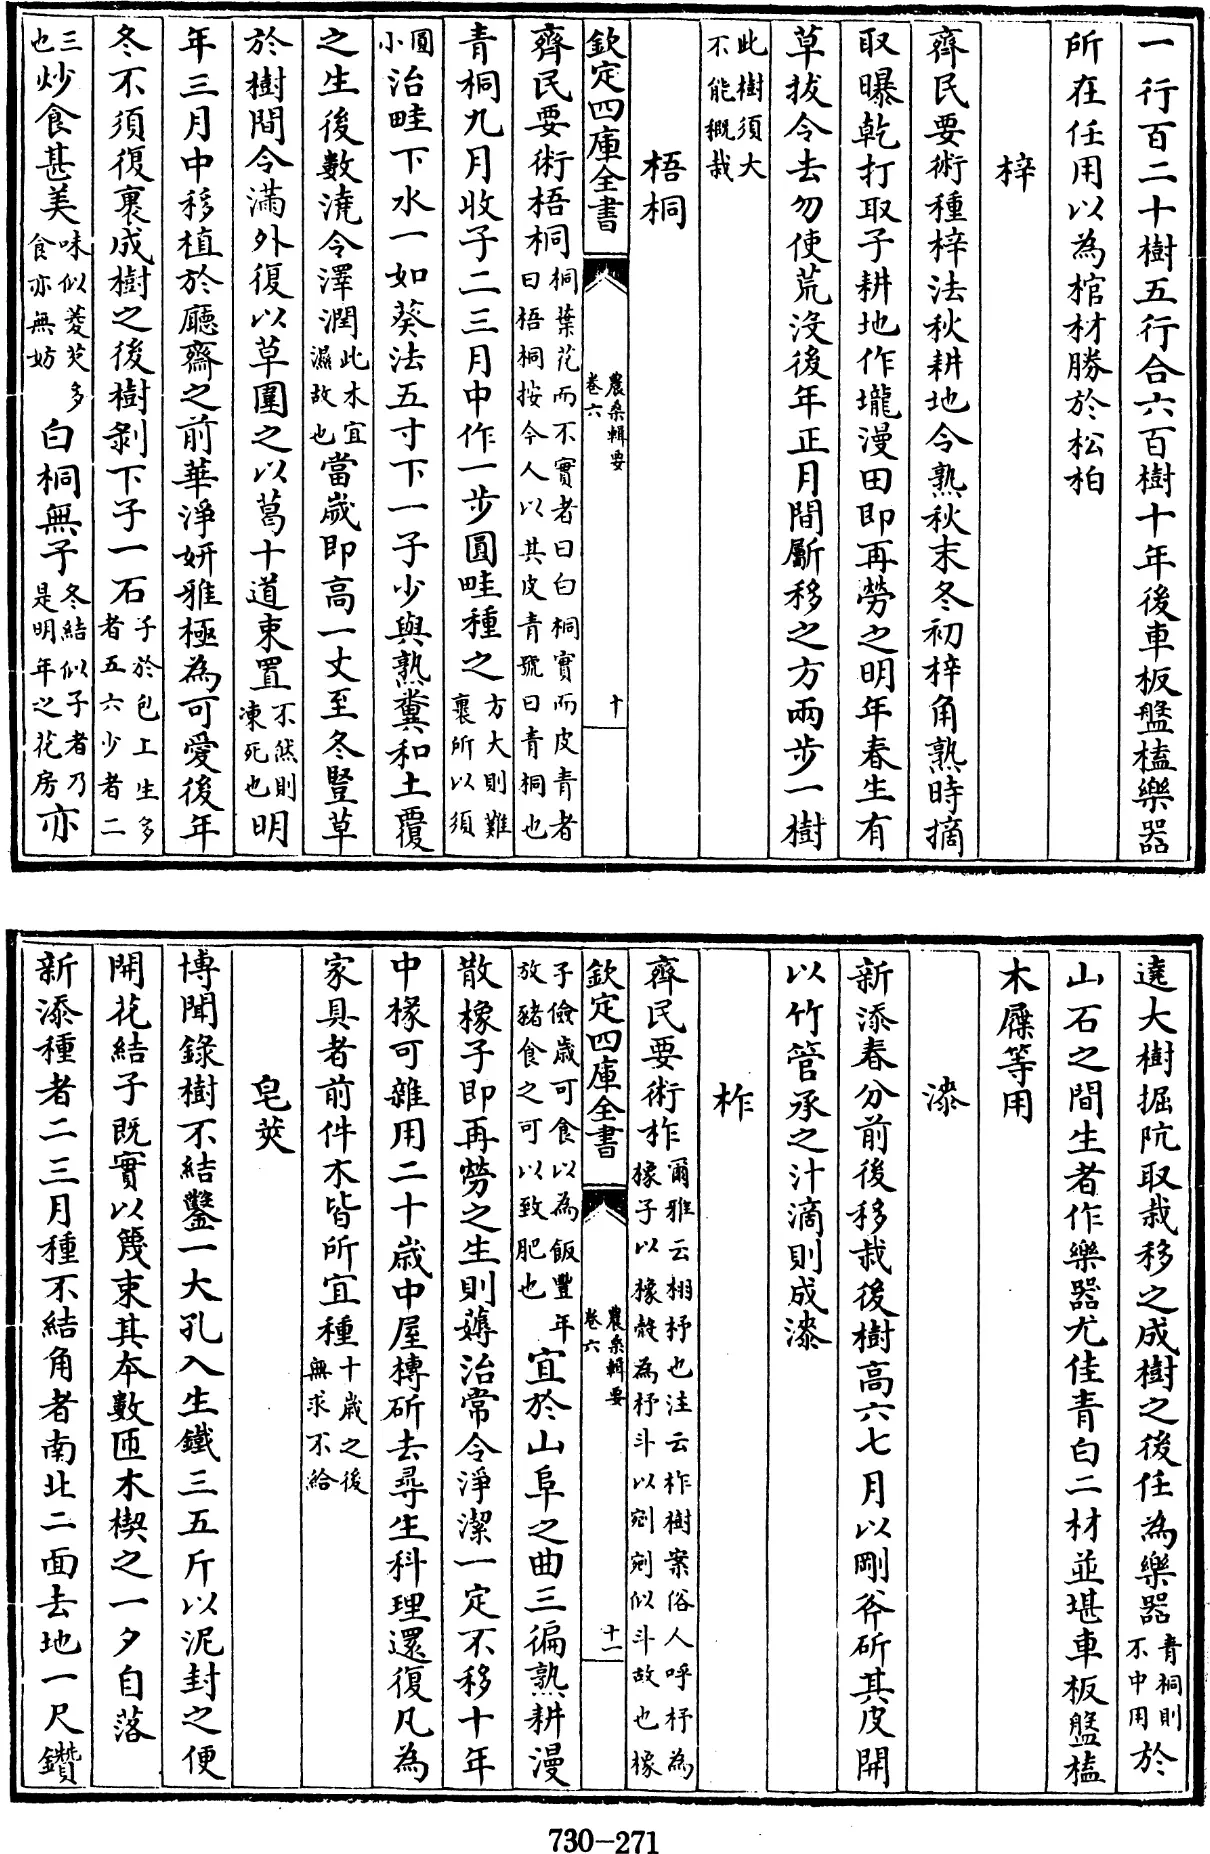 一行百二十樹五行合六百樹十年後車板盤榼樂器
所在任用以為棺材勝於松柏
梓
齊民要術種梓法秋耕地令熟秋末冬初梓角熟時摘
取曝乾打取子耕地作壠漫田即再勞之明年春生有
草拔令去勿使荒沒後年正月間斸移之方兩步一樹
此樹須大
不能概栽
梧桐
齊民要術梧桐桐葉花而不實者曰白桐實而皮青者
曰梧桐按今人以其皮青號曰青桐也
欽定四庫全書
農桑輯要
卷六
十
青桐九月收子二三月中作一步圓畦種之方大則難
裹所以須
圓
小治畦下水一如葵法五寸下一子少與熟糞和土覆
之生後數澆令澤潤此木宜
濕故也當歲即高一丈至冬豎草
於樹間令滿外復以草圍之以葛十道束置不然則
凍死也明
年三月中移植於廳齋之前華淨妍雅極為可愛後年
冬不須復裹成樹之後樹剝下子一石子於包上生多
者五六少者二
三
也炒食甚美味似菱芡多
食亦無妨白桐無子冬結似子者乃
是明年之花房亦
遶大樹掘阬取栽移之成樹之後任為樂器青桐則
不中用於
山石之間生者作樂器尤佳青白二材並堪車板盤榼
木屧等用
漆
新添春分前後移栽後樹高六七月以剛斧斫其皮開
以竹管承之汁滴則成漆
柞
齊民要術柞爾雅云栩杼也注云柞樹案俗人呼杼為
橡子以橡殼為杼斗以剜剜似斗故也橡
欽定四庫全書
農桑輯要
卷六
十一
子儉歲可食以為飯豐年
放豬食之可以致肥也宜於山阜之曲三徧熟耕漫
散橡子即再勞之生則薅治常令淨潔一定不移十年
中椽可雜用二十歲中屋欂斫去尋生科理還復凡為
家具者前件木皆所宜種十歲之後
無求不給
皂莢
博聞錄樹不結鑿一大孔入生鐵三五斤以泥封之便
開花結子既實以篾束其本數匝木楔之一夕自落
新添種者二三月種不結角者南北二面去地一尺鑽
730-271